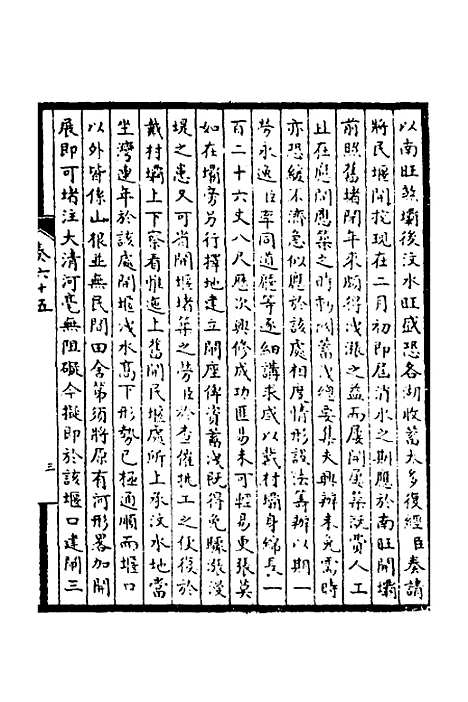 以南旺煞壩後汶水旺盛恐各湖收蓄太多復經臣奏請
將民堰開挖現在二月初即屆消水之期應於南旺開壩
前照舊堵閉年來頗得洩漲之益而屢開屢築既費人工
且在應開應築之時勤閉蓄洩總要集夫興辦未免需時
亦恐緩不濟急似應於該處相度情形設法籌辦以期一
勞永逸臣率同道廳等逐細講求咸以戴村壩身綿長一
百二十六丈八尺歷次興修成功匪易未可輕易更張莫
如在壩旁另行擇地建立閘座俾資蓄洩既得免驟漲漫
堤之患又可省開堰堵築之勞臣於查催挑工之伏後於
戴村壩上下察看惟迤上舊開民堰處所上承汶水地當
坐灣連年於該處開堰洩水高下形勢已極通順而堰口
以外皆係山根並無民間田舍第須將原有河形畧加開
展即可堵注大清河毫無阻礙今擬即於該堰口建閘三
卷六十五
三